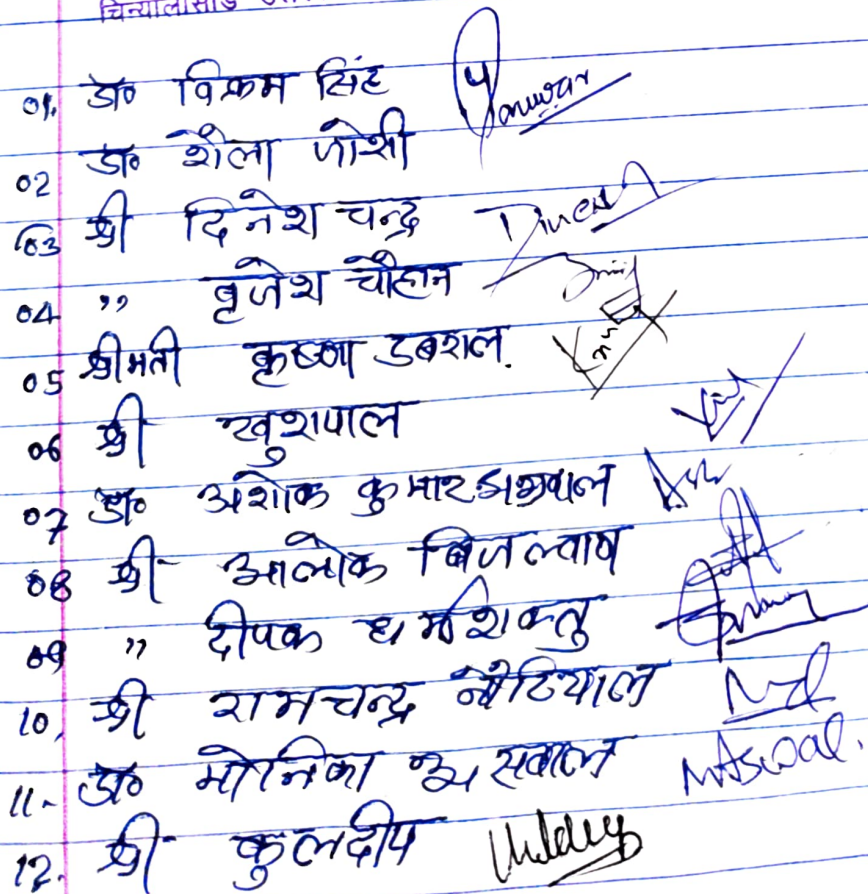 चिन्यालीसौड़
01. डॉ० विक्रम सिंह Panwar
02 डॉ० शैला जोशी
03 श्री दिनेश चन्द्र Dinesh
04 ,, बृजेश चौहान
05 श्रीमती कृष्णा डबराल.
06 श्री खुशपाल
07 डॉ० अशोक कुमार अग्रवाल
08 श्री आलोक बिजल्वाण
09 ,, दीपक धर्मशक्तु
10, श्री रामचन्द्र नौटियाल
11- डॉ० मोनिका असवाल MAswal.
12. श्री कुलदीप Kuldeep